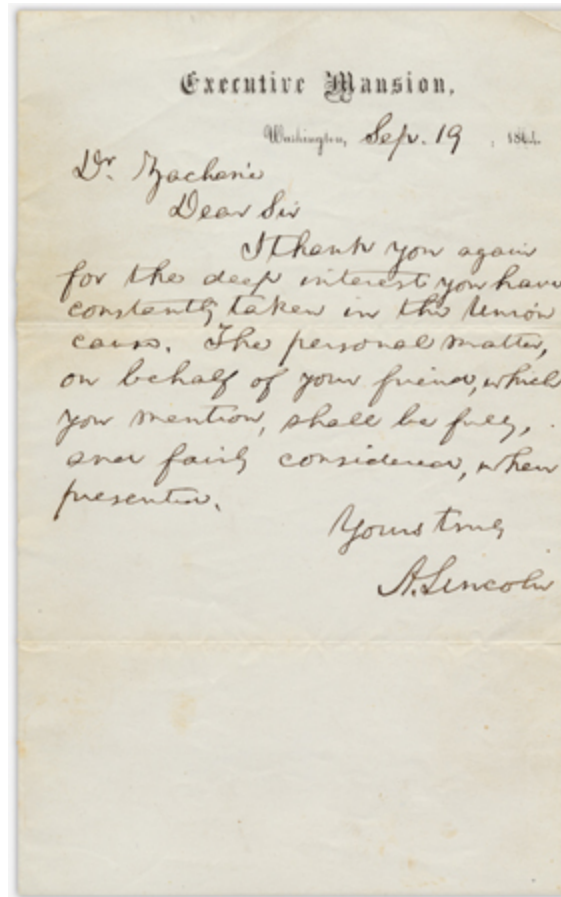 Executive Mansion,
Washington, Sep. 19, 1864.
Dr. Zacharie
Dear Sir
I thank you again
for the deep interest you have
constantly taken in the Union
cause. The personal matter,
on behalf of your friend, which
you mention, shall be fully,
and fairly considered, when
presented.
Yours truly
A. Lincoln